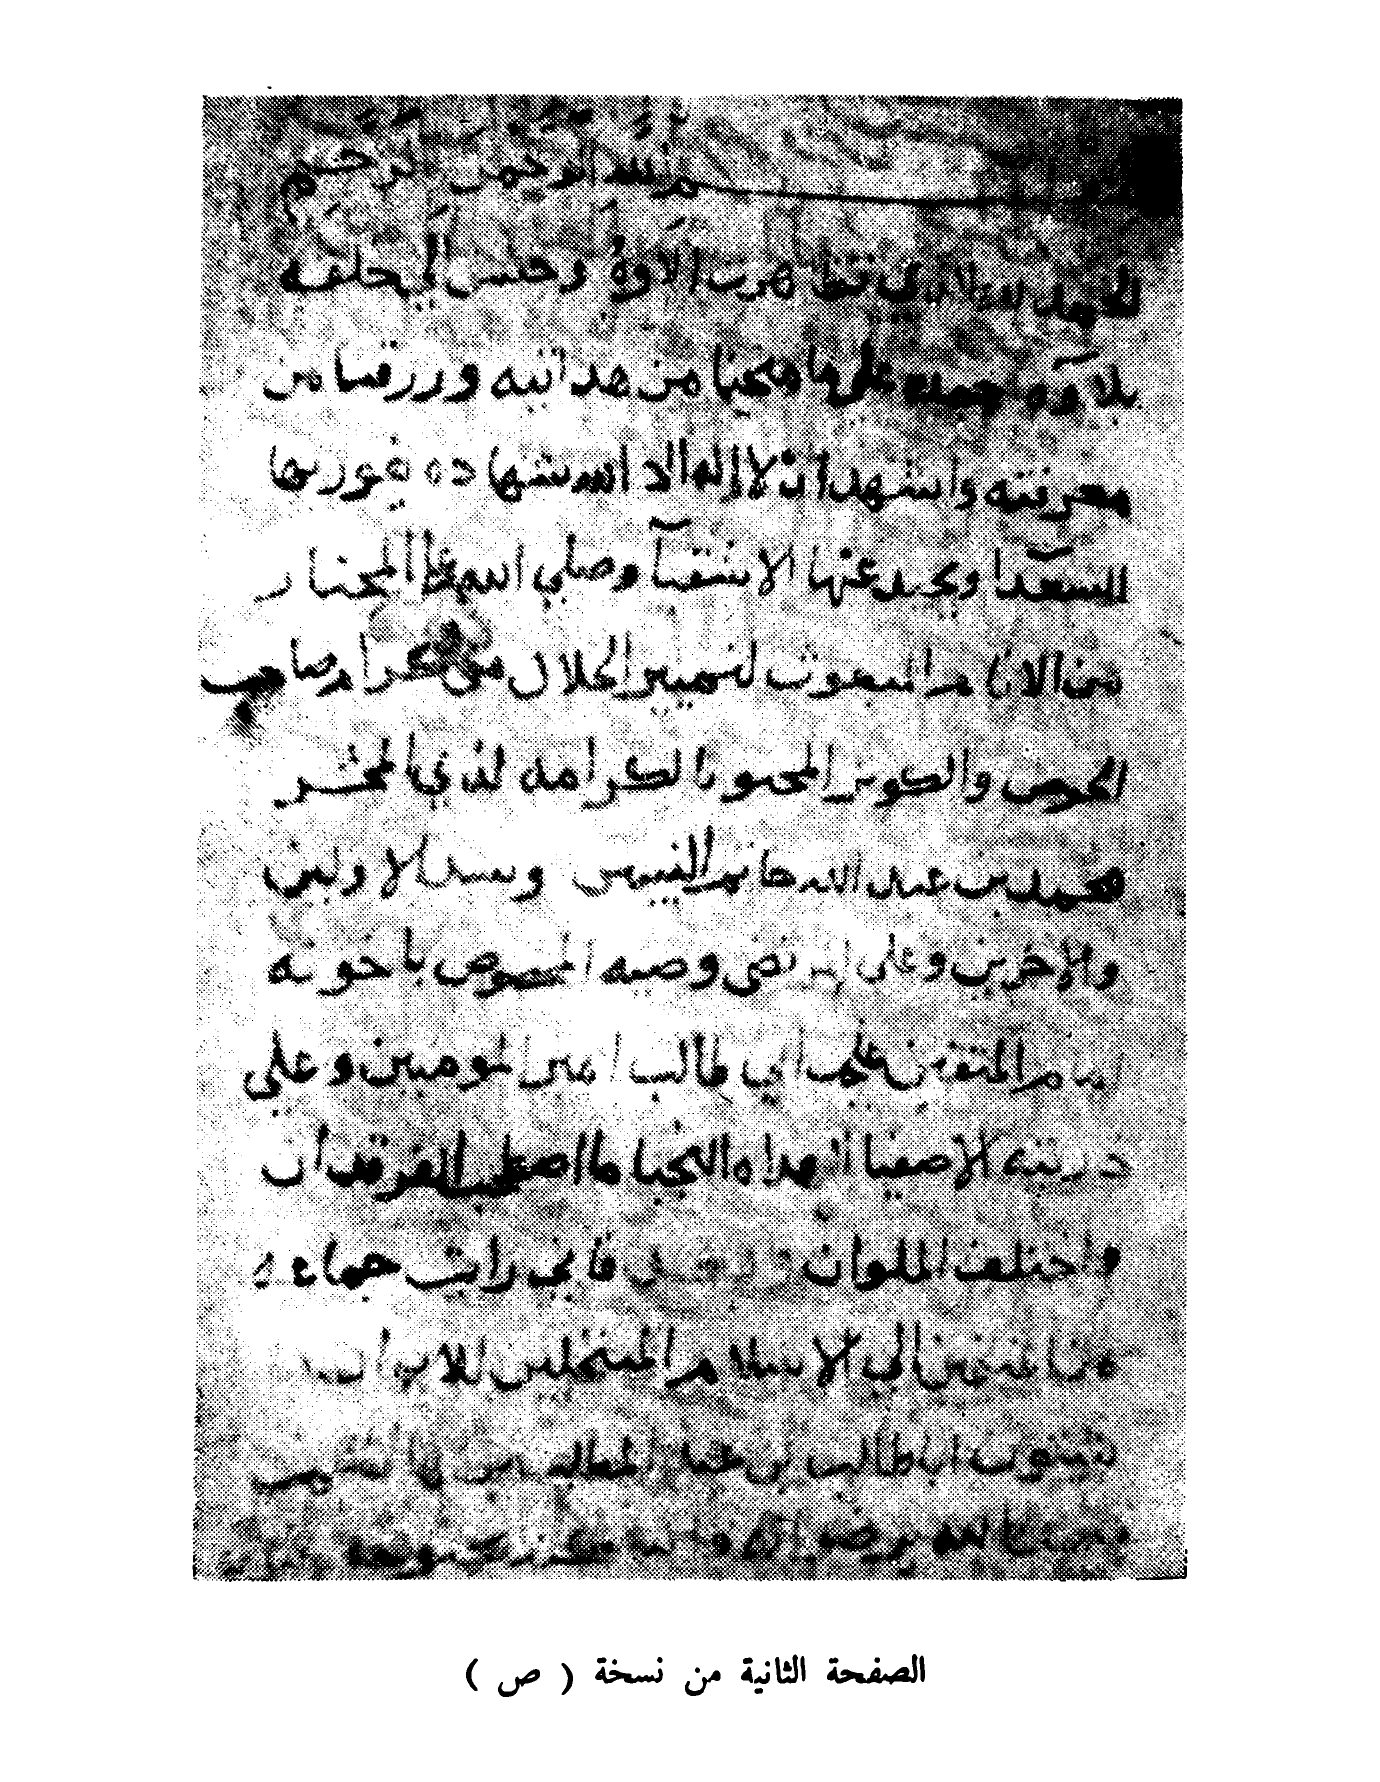 بسم الله الرحمن الرحيم
الحمد لله الذي تظاهرت الاوه وحسن الي خلقه
بلاوه احمده على ما منحنا من هدايته ورزقنا من
معرفته واشهد ان لا اله الا الله شهاده يفوز بها
السعدا ويحيد عنها الاشقيا وصلى الله على المختار
من الانام المبعوث لتمييز الحلال من الحرام صاحب
الحوض والكوثر المحبو بالكرامه لذي المحشر
محمد بن عبد الله خاتم النبيين وسيد الاولين
والاخرين وعلى المرتضى وصيه المخصوص باخوته
امام المتقين علي بن ابي طالب امير المومنين وعلي
ذريته الاصفيا الهداه النجبا ما اصطحب الفرقدان
واختلف الملوان وبعد فاني رايت جماعه
من المنتمين الي الاسلام المنتحلين للايمان
ابا طالب بن عبد المطلب بن
الصفحة الثانية من نسخة ( ص )